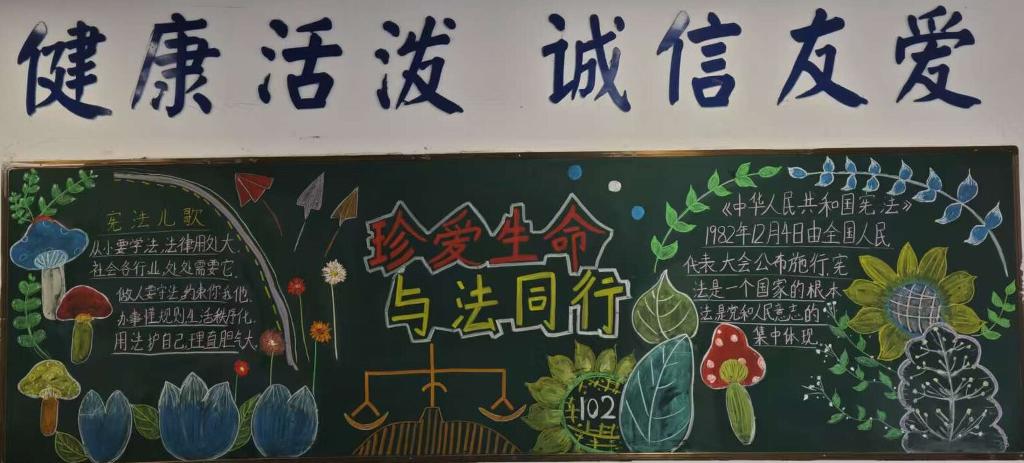 健康活泼 诚信友爱
宪法儿歌
从小要学法,法律用处大,
社会各行业,处处需要它,
做人要守法,约束你我他,
办事懂规则,生活秩序化,
用法护自己,理直胆气大,
珍爱生命
与法同行
102
《中华人民共和国宪法》
1982年12月4日由全国人民
代表大会公布施行,宪
法是一个国家的根本
法是党和人民意志的
集中体现